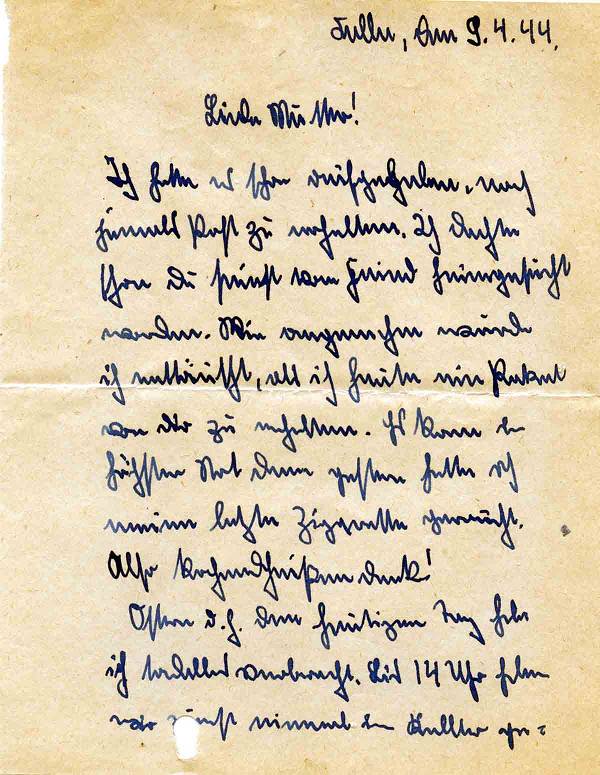 Am 9.4.44.
Liebe Mutter!
Ich hatte es schon aufgegeben, noch
jemals Post zu erhalten. Ich dachte
schon du seiest vom Feind heimgesucht
worden. Wie angenehm wurde
ich enttäuscht, als ich heute ein Paket
von dir zu erhalten. Es kam in
höchster Not denn gestern hatte ich
meine letzte Ziggarette geraucht.
Also kochendheißen dank!
Ostern d.h. den heutigen Tag habe
ich tadellos verbracht. Bis 14 Uhr haben
wir zuerst einmal im Keller ge=